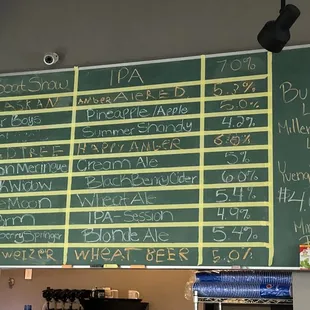 boat Show IPA 7.0%
ASKAN AMBER ALE RED 5.3%
r Boys Pineapple/Apple 5.0%
Summer Shandy 4.2%
TREE HAPPY AMBER
on Meringue Cream Ale 5%
Widow BlackBerry Cider 6.0%
Moon Wheat Ale 5.4%
Arm IPA-Session 4.9%
berry Springs Blonde Ale 5.4%
weizer WHEAT BEER 5.0%
Bu
L
Miller
L
Yueng
La
#4.
Mi